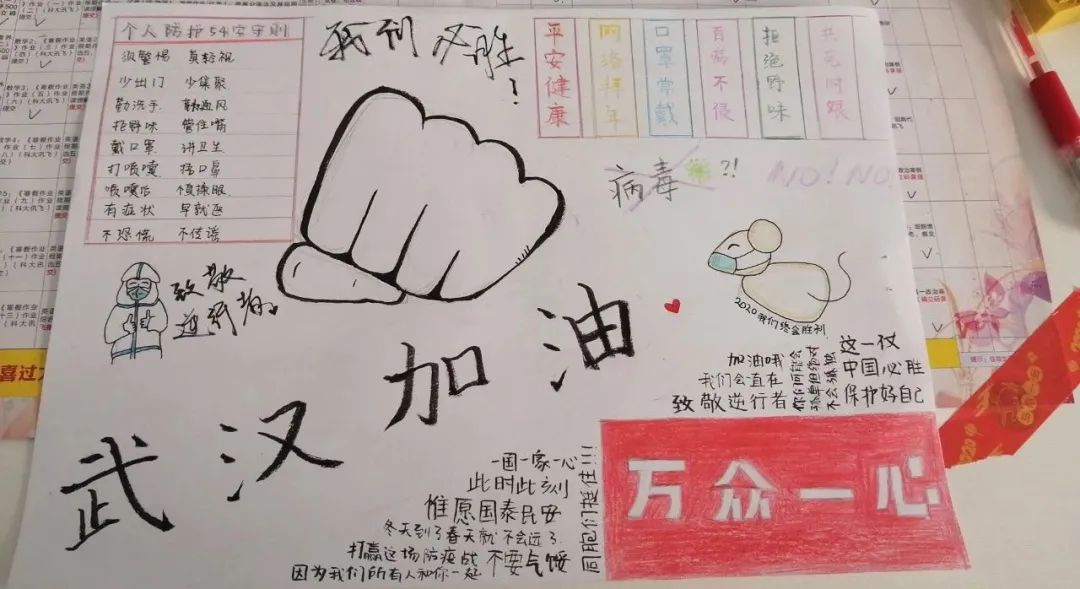 个人防护54字守则
须警惕 莫轻视
少出门 少集聚
勤洗手 勤通风
拒野味 管住嘴
戴口罩 讲卫生
打喷嚏 捂口鼻
喷嚏后 慎揉眼
有症状 早就医
不恐慌 不传谣
必胜!
平安健康
网络拜年
口罩常戴
百病不侵
拒绝野味
共克时艰
病毒 ?!
NO! NO.
致敬
逆行者。
2020我们终会胜利
武汉加油
加油哦
我们会直在
致敬逆行者
不会孤独
这一仗
中国必胜
保护好自己
一国一家一心
此时此刻
惟愿国泰民安
冬天到了春天就不会远了
打赢这场防疫战 不要气馁
因为我们所有人和你一起
同胞们挺住!!!
万众一心